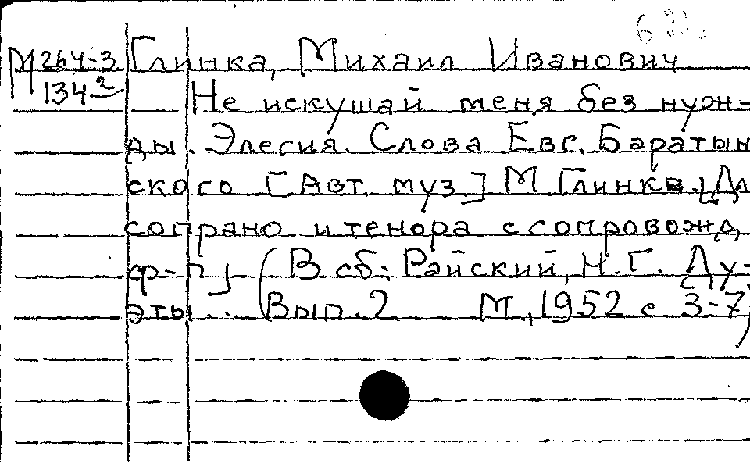 М 264-3 Глинка, Михаил Иванович
134-2 Не искушай меня без нуж-
ды. Элегия. Слова Евг. Баратын
ского [Авт. муз.] М. Глинка. [Дл
сопрано и тенора с сопровожд,
ф-п] (В сб: Райский, Н. Г. Ду-
эты.. Вып. 2 М., 1952 с 3-7)